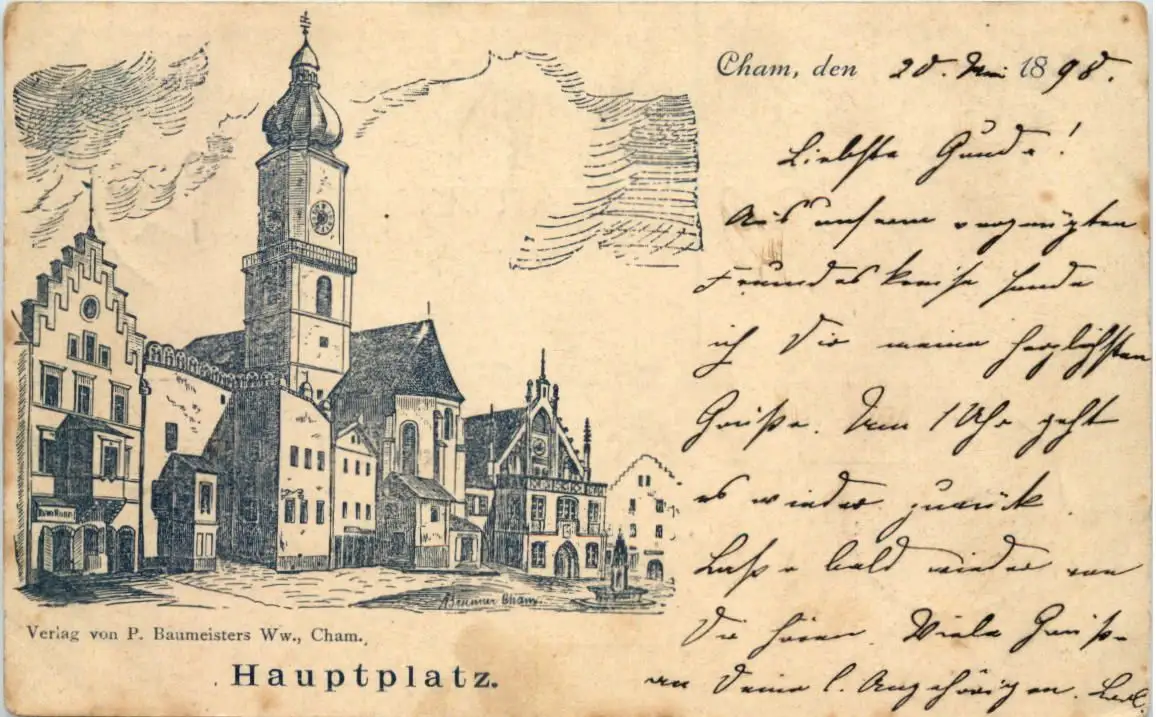 Cham, den 20. Mai 1898.
Liebste Gunda!
Aus unserem vergnügten
Freundeskreise sende
ich Dir meine herzlichsten
Grüße. Um 1 Uhr geht
es wieder zurück.
Laße bald wieder von
Dir hören. Viele Grüße
an Deine l. Angehörigen.
A Brunner Cham.
Verlag von P. Baumeisters Ww., Cham.
Hauptplatz.